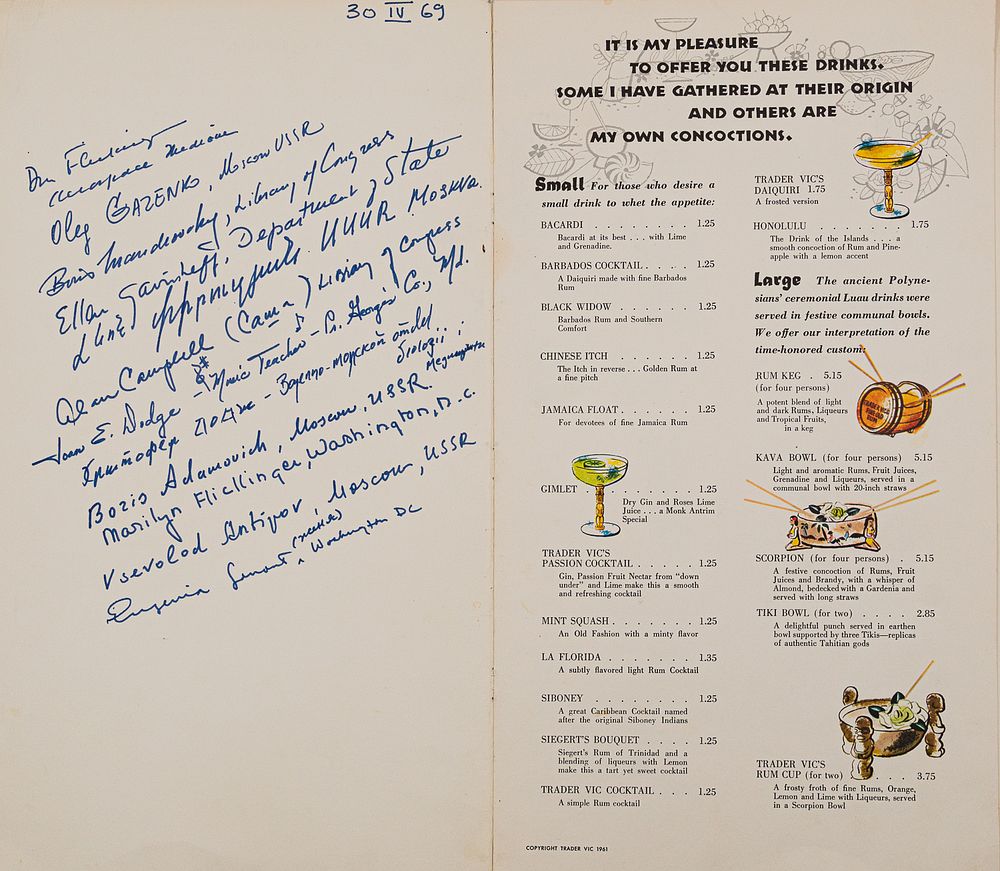 30 IV 69
Don
aerospace medicine
Oleg GAZENKO, Moscow USSR
Boris Library of Congress
Ellen Department of State
Москва.
Alan Campbell Library of Congress
Joan E. Dodge - Music Teacher - Pr. George's Co., Md.
отдел
Boris Adamovich, Moscow, USSR.
Marilyn Washington, D.C.
Vsevolod Antipov, Moscow, USSR
Eugenia Washington DC
IT IS MY PLEASURE
TO OFFER YOU THESE DRINKS.
SOME I HAVE GATHERED AT THEIR ORIGIN
AND OTHERS ARE
MY OWN CONCOCTIONS.
Small For those who desire a
small drink to whet the appetite:
BACARDI . . . . . . . . 1.25
Bacardi at its best . . . with Lime
and Grenadine.
BARBADOS COCKTAIL . . . . 1.25
A Daiquiri made with fine Barbados
Rum
BLACK WIDOW . . . . . . 1.25
Barbados Rum and Southern
Comfort
CHINESE ITCH . . . . . . 1.25
The Itch in reverse . . . Golden Rum at
a fine pitch
JAMAICA FLOAT . . . . . . 1.25
For devotees of fine Jamaica Rum
GIMLET . . . . . . 1.25
Dry Gin and Roses Lime
Juice . . . a Monk Antrim
Special
TRADER VIC'S
PASSION COCKTAIL . . . . . 1.25
Gin, Passion Fruit Nectar from "down
under" and Lime make this a smooth
and refreshing cocktail
MINT SQUASH . . . . . . . 1.25
An Old Fashion with a minty flavor
LA FLORIDA . . . . . . . 1.35
A subtly flavored light Rum Cocktail
SIBONEY . . . . . . . . 1.25
A great Caribbean Cocktail named
after the original Siboney Indians
SIEGERT'S BOUQUET . . . . 1.25
Siegert's Rum of Trinidad and a
blending of liqueurs with Lemon
make this a tart yet sweet cocktail
TRADER VIC COCKTAIL . . . 1.25
A simple Rum cocktail
COPYRIGHT TRADER VIC 1961
TRADER VIC'S
DAIQUIRI 1.75
A frosted version
HONOLULU . . . . . . . 1.75
The Drink of the Islands . . . a
smooth concoction of Rum and Pine-
apple with a lemon accent
Large The ancient Polyne-
sians' ceremonial Luau drinks were
served in festive communal bowls.
We offer our interpretation of the
time-honored custom:
RUM KEG . 5.15
(for four persons)
A potent blend of light
and dark Rums, Liqueurs
and Tropical Fruits,
in a keg
KAVA BOWL (for four persons) 5.15
Light and aromatic Rums, Fruit Juices,
Grenadine and Liqueurs, served in a
communal bowl with 20-inch straws
SCORPION (for four persons) . 5.15
A festive concoction of Rums, Fruit
Juices and Brandy, with a whisper of
Almond, bedecked with a Gardenia and
served with long straws
TIKI BOWL (for two) . . . . 2.85
A delightful punch served in earthen
bowl supported by three Tikis—replicas
of authentic Tahitian gods
TRADER VIC'S
RUM CUP (for two) . . . 3.75
A frosty froth of fine Rums, Orange,
Lemon and Lime with Liqueurs, served
in a Scorpion Bowl